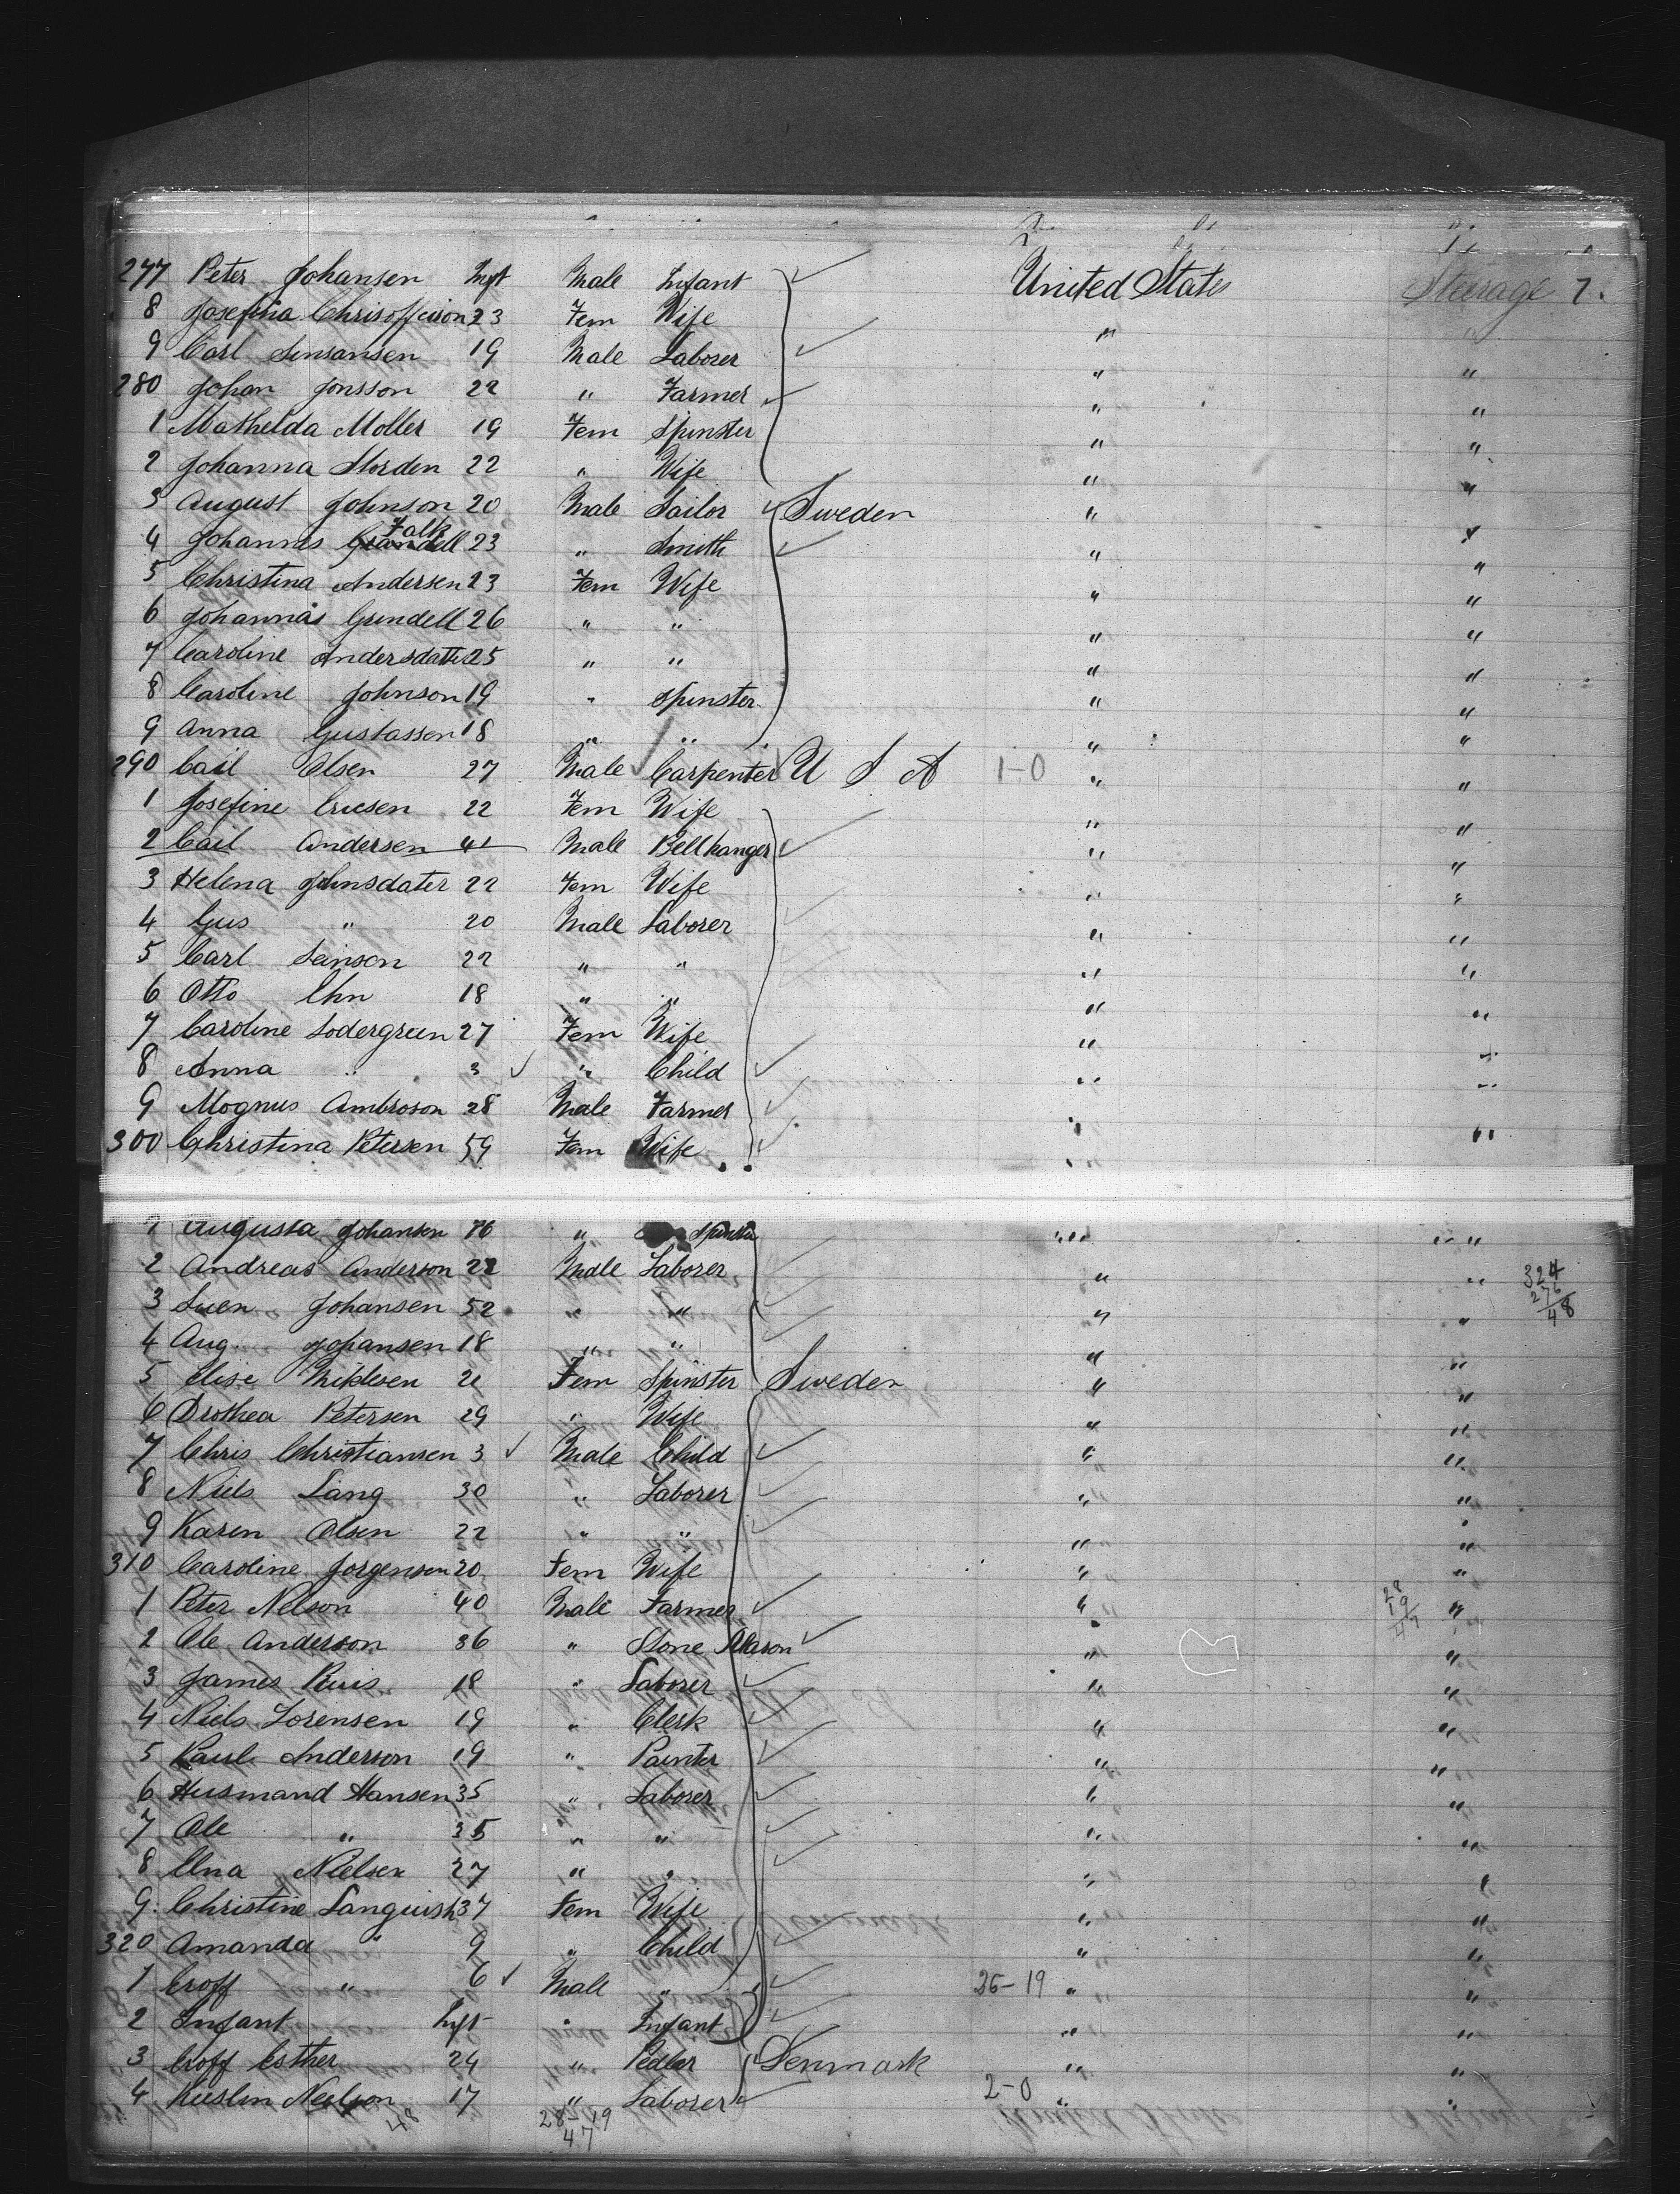 277 Peter Johansen Inft Male Infant United States Steerage 7.
8 Josefina Chrisofferson 23 Fem Wife "
9 Carl Sinsansen 19 Male Laborer " "
280 Johan Jonsson 22 " Farmer " "
1 Mathelda Moller 19 Fem Spinster " "
2 Johanna Storden 22 " Wife " "
3 August Johnson 20 Male Sailor Sweden " "
4 Johannes Falk 23 " Smith " "
5 Christina Andersen 23 Fem Wife " "
6 Johannas Grindell 26 " " " "
7 Caroline Andersdatter 25 " " " "
8 Caroline Johnson 19 " Spinster " "
9 Anna Gustasson 18 " " " "
290 Cail Olsen 27 Male Carpenter U S A 1-0 " "
1 Josefine Ericsen 22 Fem Wife " "
2 Cail Andersen 41 Male Bellhanger " "
3 Helena Johnsdater 22 Fem Wife " "
4 Gus " 20 Male Laborer " "
5 Carl Seinson 22 " " " "
6 Otto Ehn 18 " " " "
7 Caroline Sodergreen 27 Fem Wife " "
8 Anna " 3 " Child " "
9 Mognus Ambroson 28 Male Farmer " "
300 Christina Petersen 59 Fem Wife "
1 Augusta Johansen 76 " Spinster " "
2 Andreas Anderson 22 Male Laborer " " 324
3 Suen Johansen 52 " " " " 276
48
4 Aug Johansen 18 " " " "
5 Elise Miklesen 21 Fem Spinster Sweden " "
6 Drothea Petersen 29 " Wife " "
7 Chris Christiansen 3 Male Child " "
8 Niels Lang 30 " Laborer " "
9 Karen Olsen 22 " " " "
310 Caroline Jorgensen 20 Fem Wife " "
1 Peter Nelson 40 Male Farmer " 28 19 47 "
2 Ole Anderson 36 " Stone Mason " "
3 James Kuis 18 " Laborer " "
4 Niels Lorensen 19 " Clerk " "
5 Paul Anderson 19 " Painter " "
6 Husmand Hansen 35 " Laborer " "
7 Ole " 35 " " " "
8 Elna Nielsen 27 " " " "
9 Christine Languish 37 Fem Wife " "
320 Amanda " 9 " Child " "
1 Croff " 6 Male " 26-19 " "
2 Infant Inft " Infant " "
3 Croff Esther 24 " Pedler Denmark " "
4 Nielson 17 " Laborer 2-0 " "
48 28-19
47